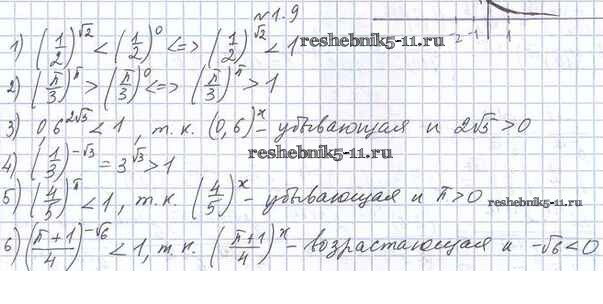 №1.9
-2 -1 1
1) (1/2)^√2 < (1/2)^0 <=> (1/2)^√2 < 1
reshebnik5-11.ru
2) (π/3)^π > (π/3)^0 <=> (π/3)^π > 1
3) 0,6^2√5 < 1, т.к. (0,6)^x - убывающая и 2√5 > 0
4) (1/3)^-√3 = 3^√3 > 1
reshebnik5-11.ru
5) (4/5)^π < 1, т.к. (4/5)^x - убывающая и π > 0
reshebnik5-11.ru
6) ((π+1)/4)^-√6 < 1, т.к. ((π+1)/4)^x - возрастающая и -√6 < 0